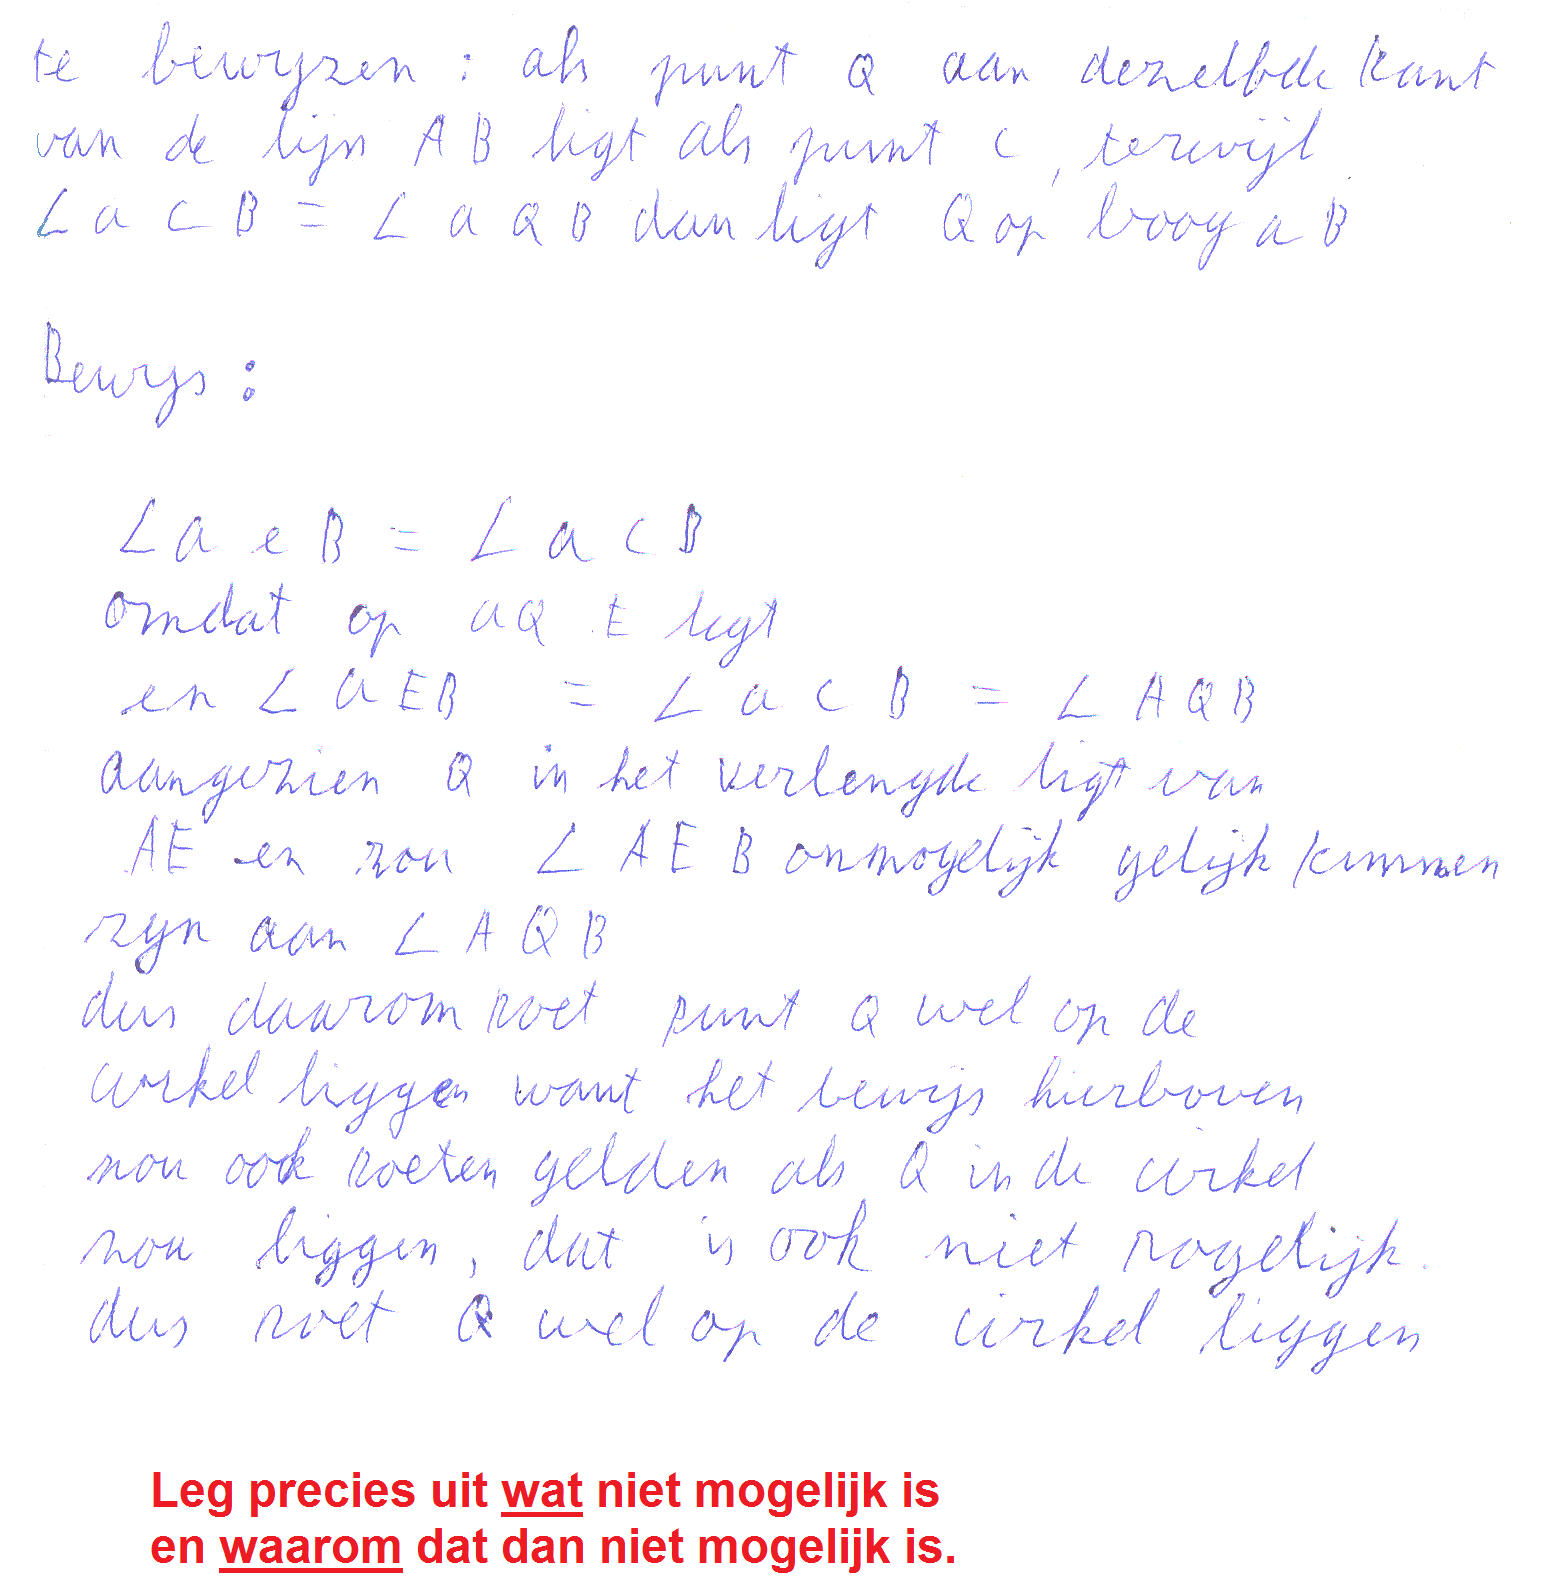 te bewyzen : als punt Q aan dezelfde kant
van de lijn A B ligt als punt C, terwijl
∠ a C B = ∠ a Q B dan ligt Q op boog a B
Bewys :
∠ a e B = ∠ a C B
omdat op aQ E ligt
en ∠ a E B = ∠ a C B = ∠ A Q B
aangezien Q in het verlengde ligt van
AE en zou ∠ A E B onmogelijk gelijk kunnen
zyn aan ∠ A Q B
dus daarom moet punt Q wel op de
cirkel liggen want het bewijs hierboven
zou ook moeten gelden als Q in de cirkel
zou liggen, dat is ook niet mogelijk.
dus moet Q wel op de cirkel liggen
Leg precies uit wat niet mogelijk is
en waarom dat dan niet mogelijk is.